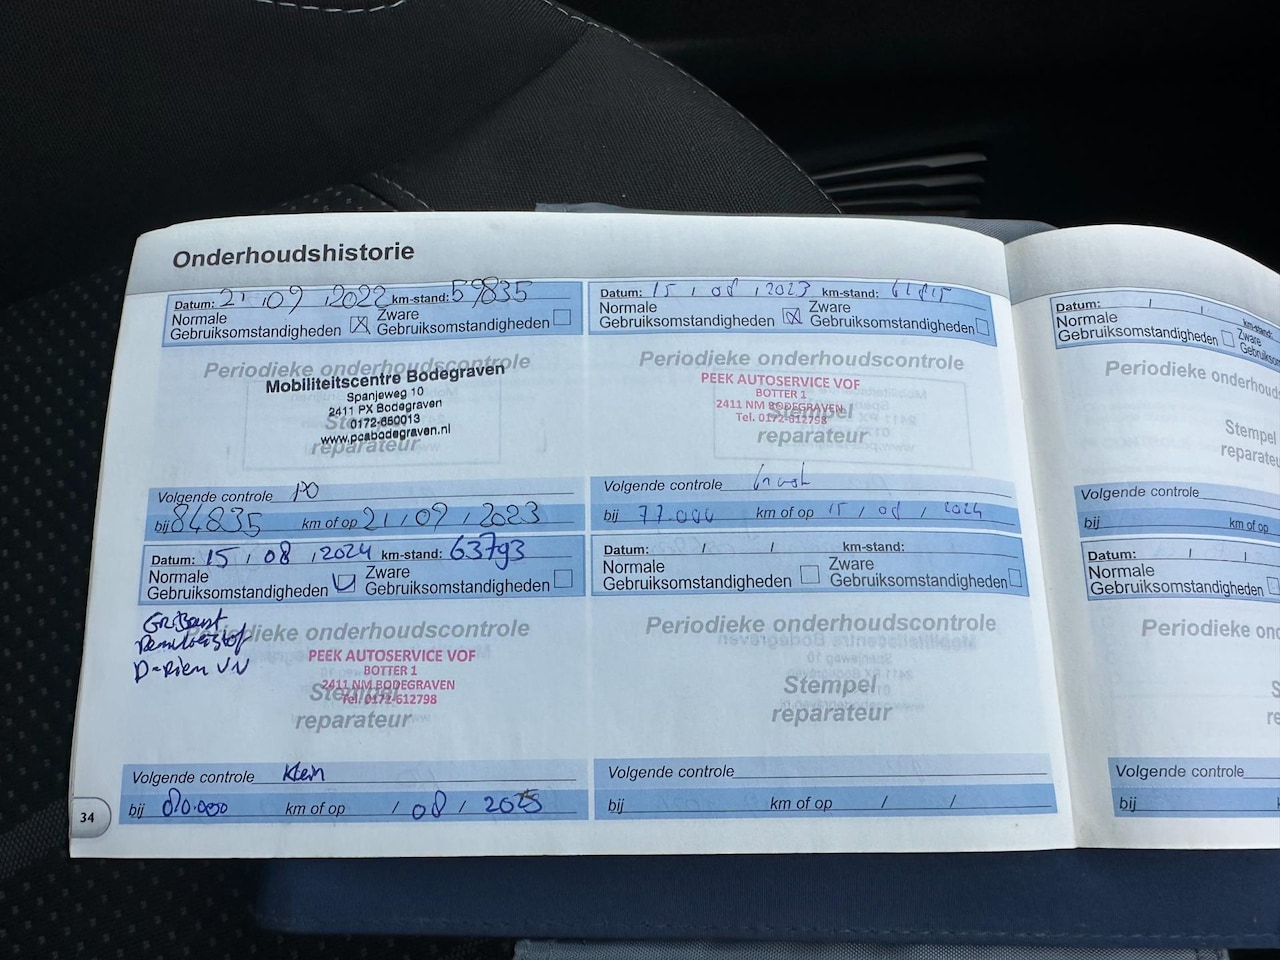 Onderhoudshistorie
Datum: 21 / 09 / 2022 km-stand: 59835
Normale Gebruiksomstandigheden
Zware Gebruiksomstandigheden
Periodieke onderhoudscontrole
Mobiliteitscentre Bodegraven
Spanjeweg 10
2411 PX Bodegraven
0172-650013
www.pcabodegraven.nl
Stempel
reparateur
Volgende controle PO
bij 84835 km of op 21 / 09 / 2023
Datum: 15 / 08 / 2023 km-stand:
Normale Gebruiksomstandigheden
Zware Gebruiksomstandigheden
Periodieke onderhoudscontrole
PEEK AUTOSERVICE VOF
BOTTER 1
2411 NM BODEGRAVEN
Tel. 0172-612798
Stempel
reparateur
Volgende controle
bij 77.000 km of op 15 / 08 / 2024
Datum: 15 / 08 / 2024 km-stand: 63793
Normale Gebruiksomstandigheden
Zware Gebruiksomstandigheden
Periodieke onderhoudscontrole
Gr. Beurt
Remvloeistof
D-Riem VN
PEEK AUTOSERVICE VOF
BOTTER 1
2411 NM BODEGRAVEN
Tel. 0172-612798
Stempel
reparateur
Volgende controle Klein
bij 80.000 km of op / 08 / 2025
Datum: / / km-stand:
Normale Gebruiksomstandigheden
Zware Gebruiksomstandigheden
Periodieke onderhoudscontrole
Stempel
reparateur
Volgende controle
bij km of op / /
34
Datum: / / km-stand:
Normale Gebruiksomstandigheden
Zware
Periodieke
Stempel
Volgende controle
bij km of op
Datum: / /
Normale Gebruiksomstandigheden
Periodieke
Volgende controle
bij